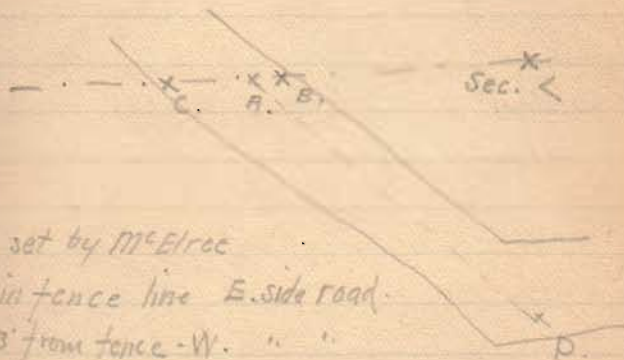 Sec. <
C. A. B.
set by McElree
in fence line E. side road.
3' from fence - W. " "
D